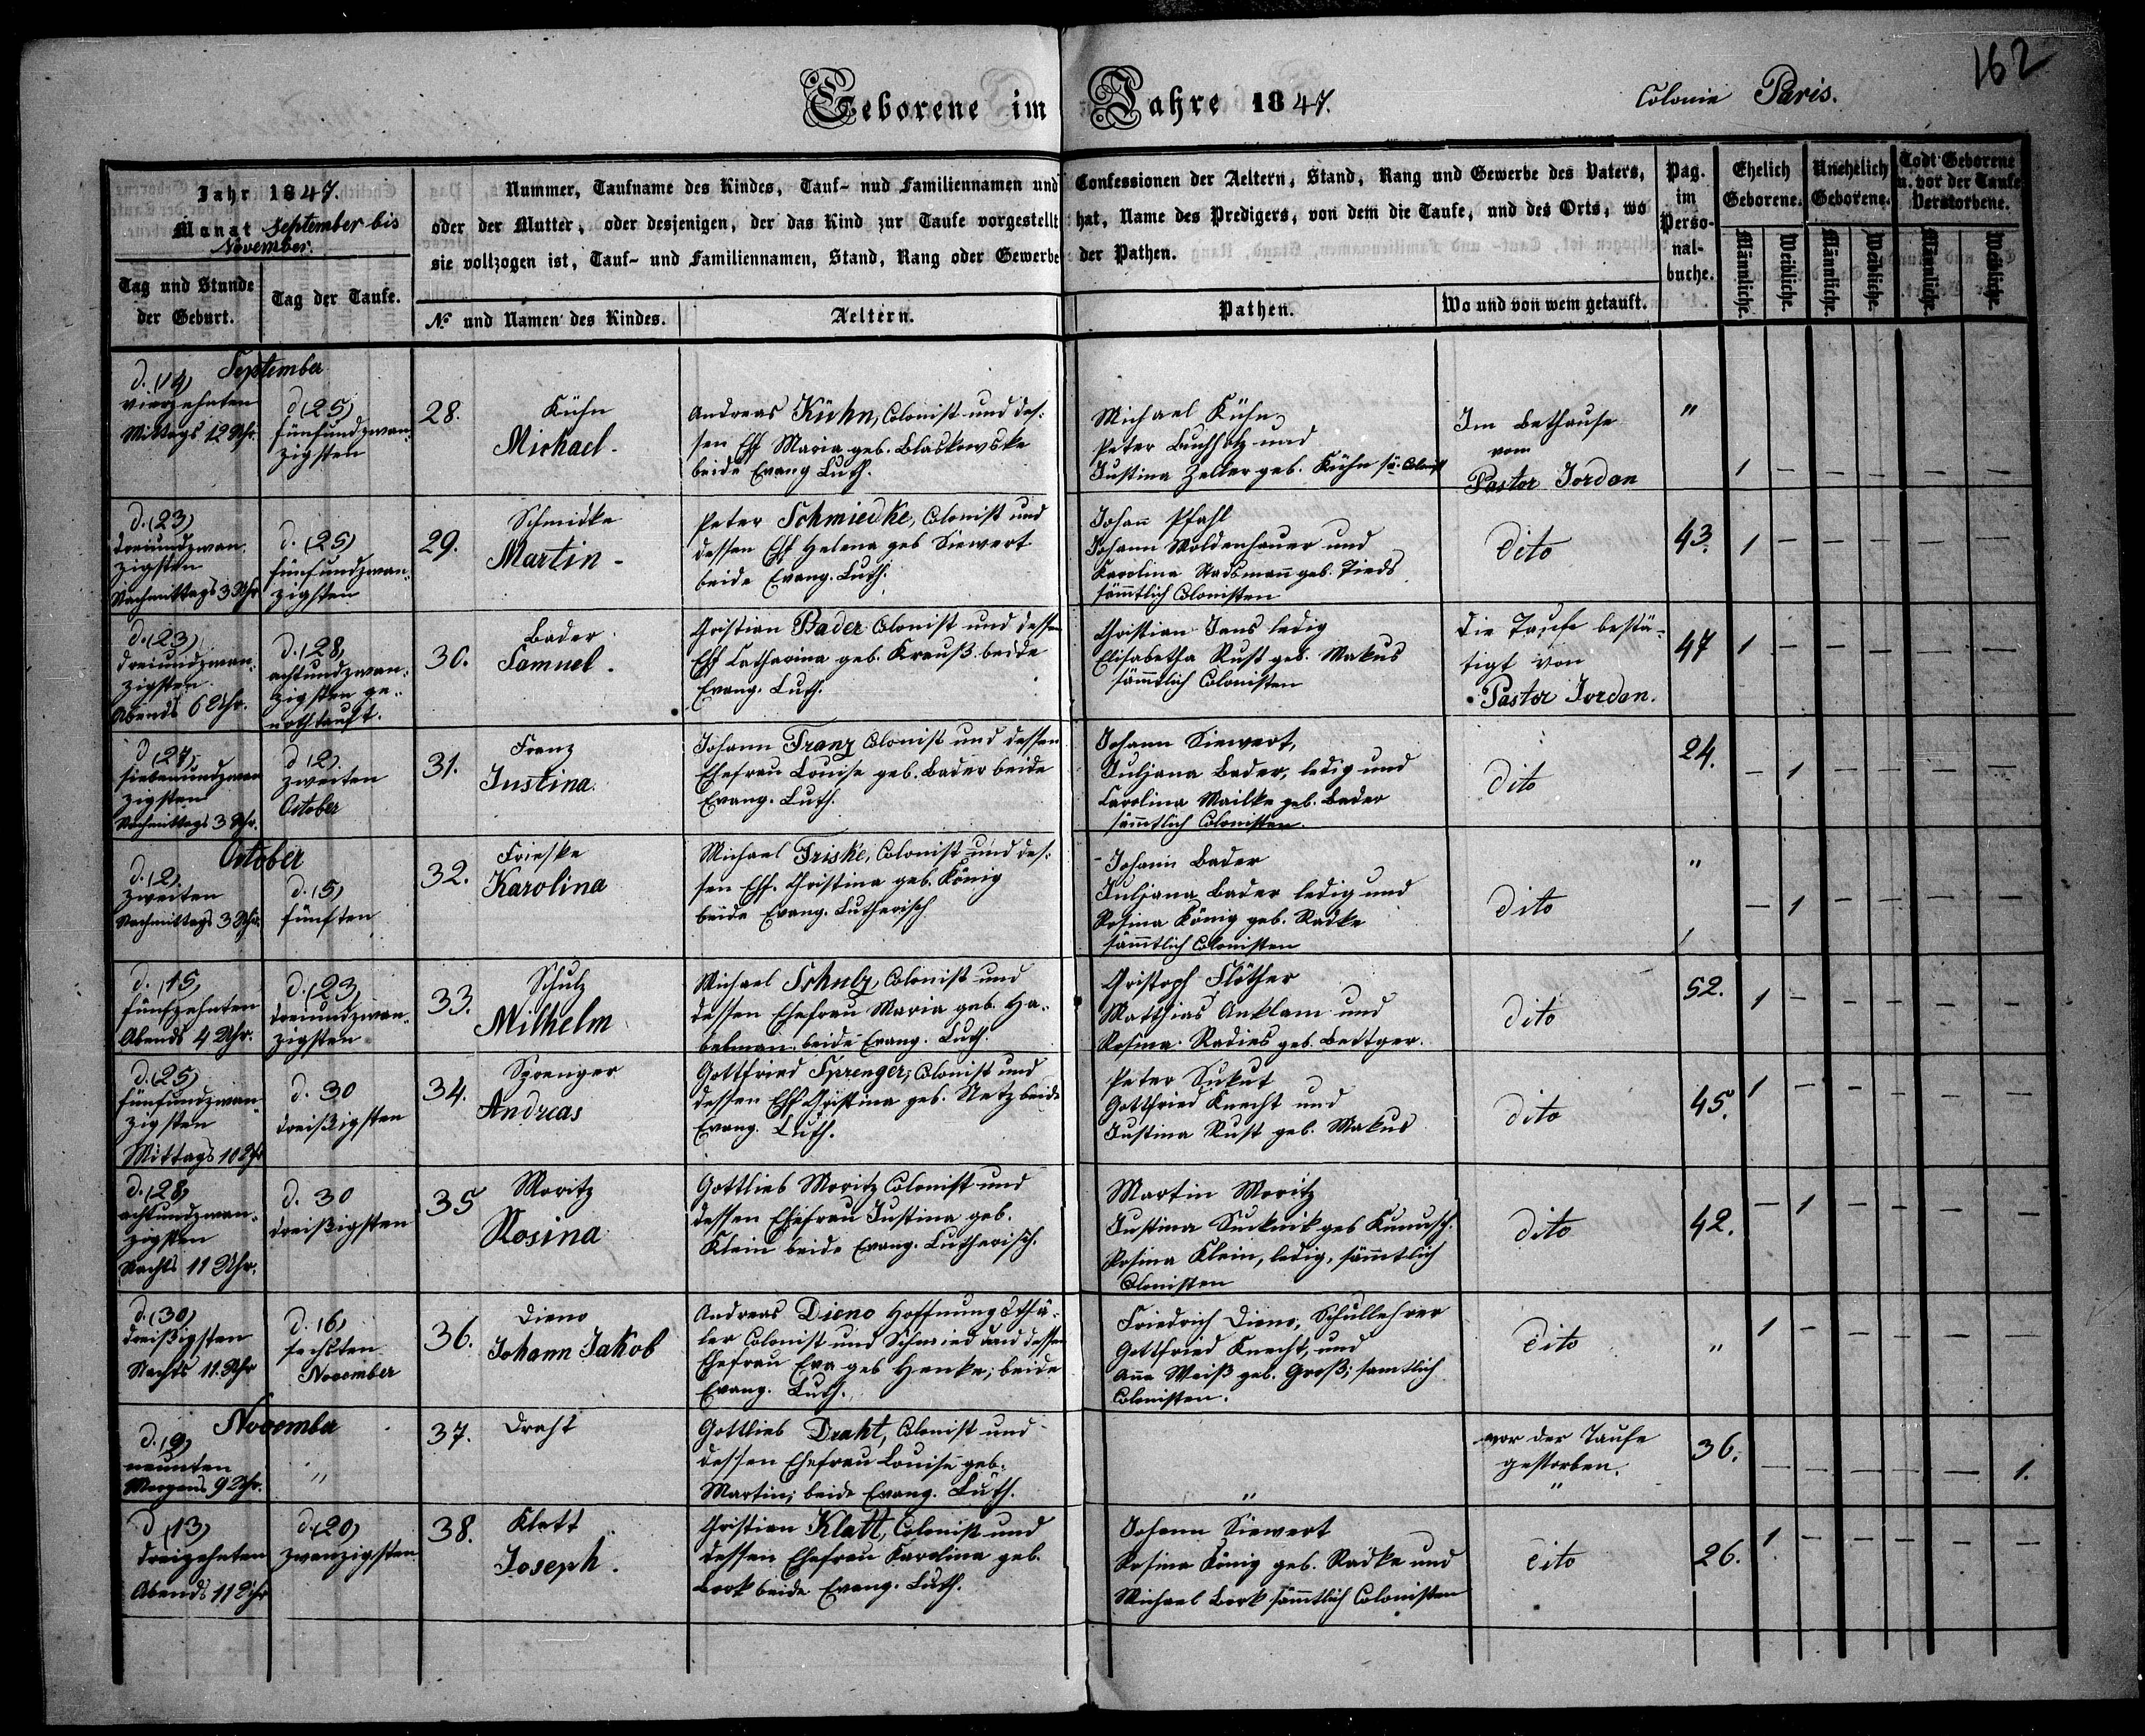 162
Geborene im Jahre 1847.
Colonie Paris.
Jahr 1847.
Monat September bis
November.
Tag und Stunde
der Geburt.
Tag der Taufe.
Nummer, Taufname des Kindes, Tauf- nud Familiennamen und Confessionen der Aeltern, Stand, Rang und Gewerbe des Vaters,
oder der Mutter, oder desjenigen, der das Kind zur Taufe vorgestellt hat, Name des Predigers, von dem die Taufe, und des Orts, wo
sie vollzogen ist, Tauf- und Familiennamen, Stand, Rang oder Gewerbe der Pathen.
№ und Namen des Kindes.
Aeltern.
Pathen.
Wo und von wem getauft.
Pag.
im
Perso-
nal-
buche.
Ehelich
Geborene.
Unehelich
Geborene.
Todt Geborene
u. vor der Taufe
Verstorbene.
Männliche.
Weibliche.
Männliche.
Weibliche.
Männliche.
Weibliche.
September
d. (14)
vierzehnten
Mittags 12 Uhr.
d (25)
fünfundzwan-
zigsten
28.
Kühn
Michael.
Andreas Kühn, Colonist und des-
sen Ehf Maria geb. Blaskowske
beide Evang Luth.
Michael Kühn
Peter Buchholz und
Justina Zeller geb. Kühn sä. Colonist
Im Bethause
vom
Pastor Jordan
"
1 – – – – –
d. (23)
dreiundzwan-
zigsten
Nachmittags 3 Uhr
d. (25)
fünfundzwan-
zigsten
29.
Schmidke
Martin –
Peter Schmiedke, Colonist und
dessen Ehf Helena geb Siewert
beide Evang. Luth.
Johan Pfahl
Johann Moldenhauer und
Karolina Radsman geb. Tieds
sämtlich Colonisten
dito
43.
1 – – – – –
d. (23)
dreiundzwan-
zigsten
Abends 6 Uhr.
d. (28)
achtundzwan-
zigsten ge-
nothtauft.
30.
Bader
Samuel.
Christian Bader Colonist und dessen
Ehf Catharina geb. Krauß. beide
Evang. Luth.
Christian Jans ledig
Elisabetha Rust geb. Makus
sämtlich Colonisten
Die Taufe bestä-
tigt von
Pastor Jordan.
47
1 – – – – –
d (27)
siebenundzwan
zigsten
Nachmittags 3 Uhr.
d (2)
zweiten
October
31.
Franz
Justina.
Johann Franz Colonist und dessen
Ehefrau Louise geb. Bader beide
Evang. Luth.
Johann Siewert,
Juljana Bader, ledig und
Carolina Mailke geb. Bader
sämtlich Colonisten.
dito
24.
– 1 – – – –
October
d. (2)
zweiten
Nachmittags 3 Uhr.
d. (5)
fünften
32.
Frieske
Karolina
Michael Friske, Colonist und des-
sen Ehf. Christina geb. König
beide Evang. Lutherisch
Johann Bader
Juljana Bader ledig und
Rosina König geb. Radke
sämtlich Colonisten
dito
"
– 1 – – – –
d. (15)
fünfzehnten
Abends 4 Uhr.
d. (23)
dreiundzwan-
zigsten
33.
Schulz
Wilhelm
Michael Schulz, Colonist und
dessen Ehefrau Maria geb. Ha-
belman. beide Evang. Luth.
Christoph Flöther
Matthias Anklam und
Rosina Radies geb. Bettger.
dito
52.
1 – – – – –
d. (25)
fünfundzwan-
zigsten
Mittags 10 Uhr
d. 30
dreißigsten
34.
Sprenger
Andreas
Gottfried Sprenger, Colonist und
dessen Ehf Christina geb. Netz beide
Evang. Luth.
Peter Sukut
Gottfried Knecht und
Justina Rust geb. Makus
dito
45.
1 – – – – –
d. (28)
achtundzwan-
zigsten
Nachts 11 Uhr.
d. 30
dreißigsten
35
Moritz
Rosina
Gottlieb Moritz Colonist und
dessen Ehefrau Justina geb.
Klein beide Evang. Lutherisch.
Martin Moritz
Justina
Rosina Klein, ledig, sämtlich
Colonisten
dito
42.
– 1 – – – –
d. (30)
dreißigsten
Nachts 11 Uhr
d. (6)
sechsten
November
36.
Dieno
Johann Jakob
Andreas Dieno Hoffnungsthä-
ler Colonist und Schmied und dessen
Ehefrau Eva geb Henke; beide
Evang. Luth.
Friedrich Dieno, Schullehrer
Gottfried Knecht, und
Anna Weiß geb. Groß; sämtlich
Colonisten.
dito
"
1 – – – – –
November
d. (9)
neunten
Morgens 9 Uhr.
"
37.
Draht
Gottlieb Draht, Colonist und
dessen Ehefrau Louise geb.
Martin; beide Evang. Luth.
"
vor der Taufe
gestorben.
"
36.
– – – – – 1.
d (13)
dreizehnten
Abends 11 Uhr
d. (20)
zwanzigsten
38.
Klatt
Joseph.
Christian Klatt, Colonist und
dessen Ehefrau Karolina geb.
Bork beide Evang. Luth.
Johann Siewert
Rosina König geb. Radke und
Michael Bork sämtlich Colonisten
dito
26.
1 – – – – –